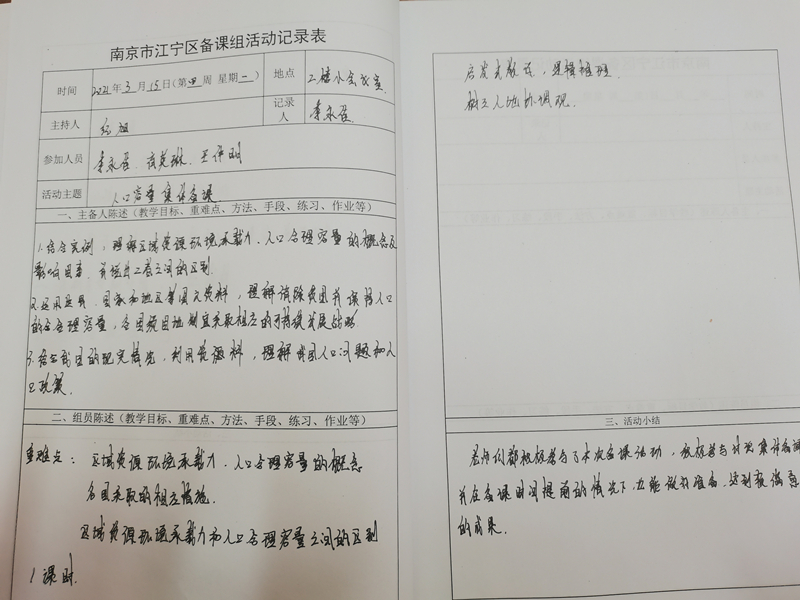 南京市江宁区备课组活动记录表
时间 2021年3月15日(第四周 星期一) 地点 会议室
主持人 记录人 李永
参加人员 李永
活动主题 人口容量集体备课
一、主备人陈述(教学目标、重难点、方法、手段、练习、作业等)
1.结合实例,理解区域资源环境承载力、人口合理容量的概念及
影响因素,并 二者之间的区别.
2.运用 国家和地区 图文资料,理解 人口
的 合理容量,各国须因地制宜采取相应的可持续发展战略
3.结合我国的现实情况,利用 资料,理解我国人口问题和人
口政策.
二、组员陈述(教学目标、重难点、方法、手段、练习、作业等)
重难点: 区域资源环境承载力、人口合理容量的概念
各国采取的相应措施.
区域资源环境承载力和人口合理容量之间的区别
1课时.
启发式教学,逻辑推理.
树立人地协调观.
三、活动小结
老师们都积极参与了本次备课活动,积极参与讨论集体备课
并在备课时间提前的情况下,也能做好准备,达到较满意
的成果.